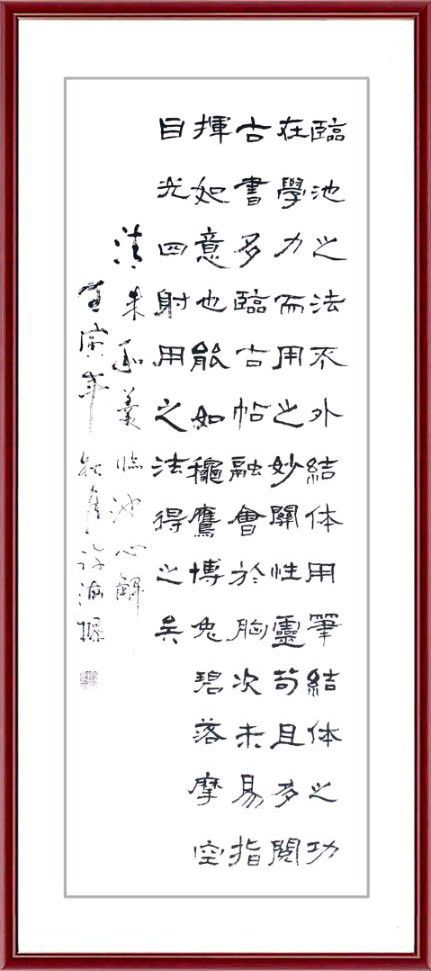 臨池之法不外結体用筆結体之功
在學力而用之妙關性靈苟且多閱
古書多臨古帖融會於胸次未易指
揮如意也能如龝鷹博兔碧落摩空
目光四射用之法得之矣
清朱和羹臨池心解
壬寅年